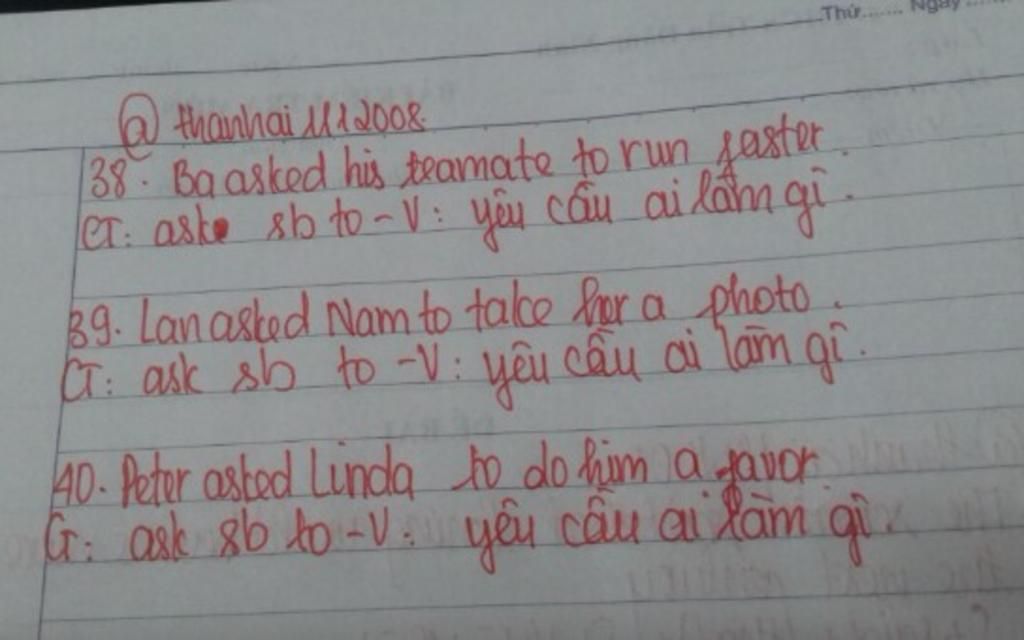 Thứ....... Ngày.......
@ thanhai 1112008.
38. Ba asked his teamate to run faster.
CT: ask sb to-V: yêu cầu ai làm gì.
39. Lan asked Nam to take her a photo.
CT: ask sb to-V: yêu cầu ai làm gì.
40. Peter asked Linda to do him a favor
CT: ask sb to-V: yêu cầu ai làm gì.